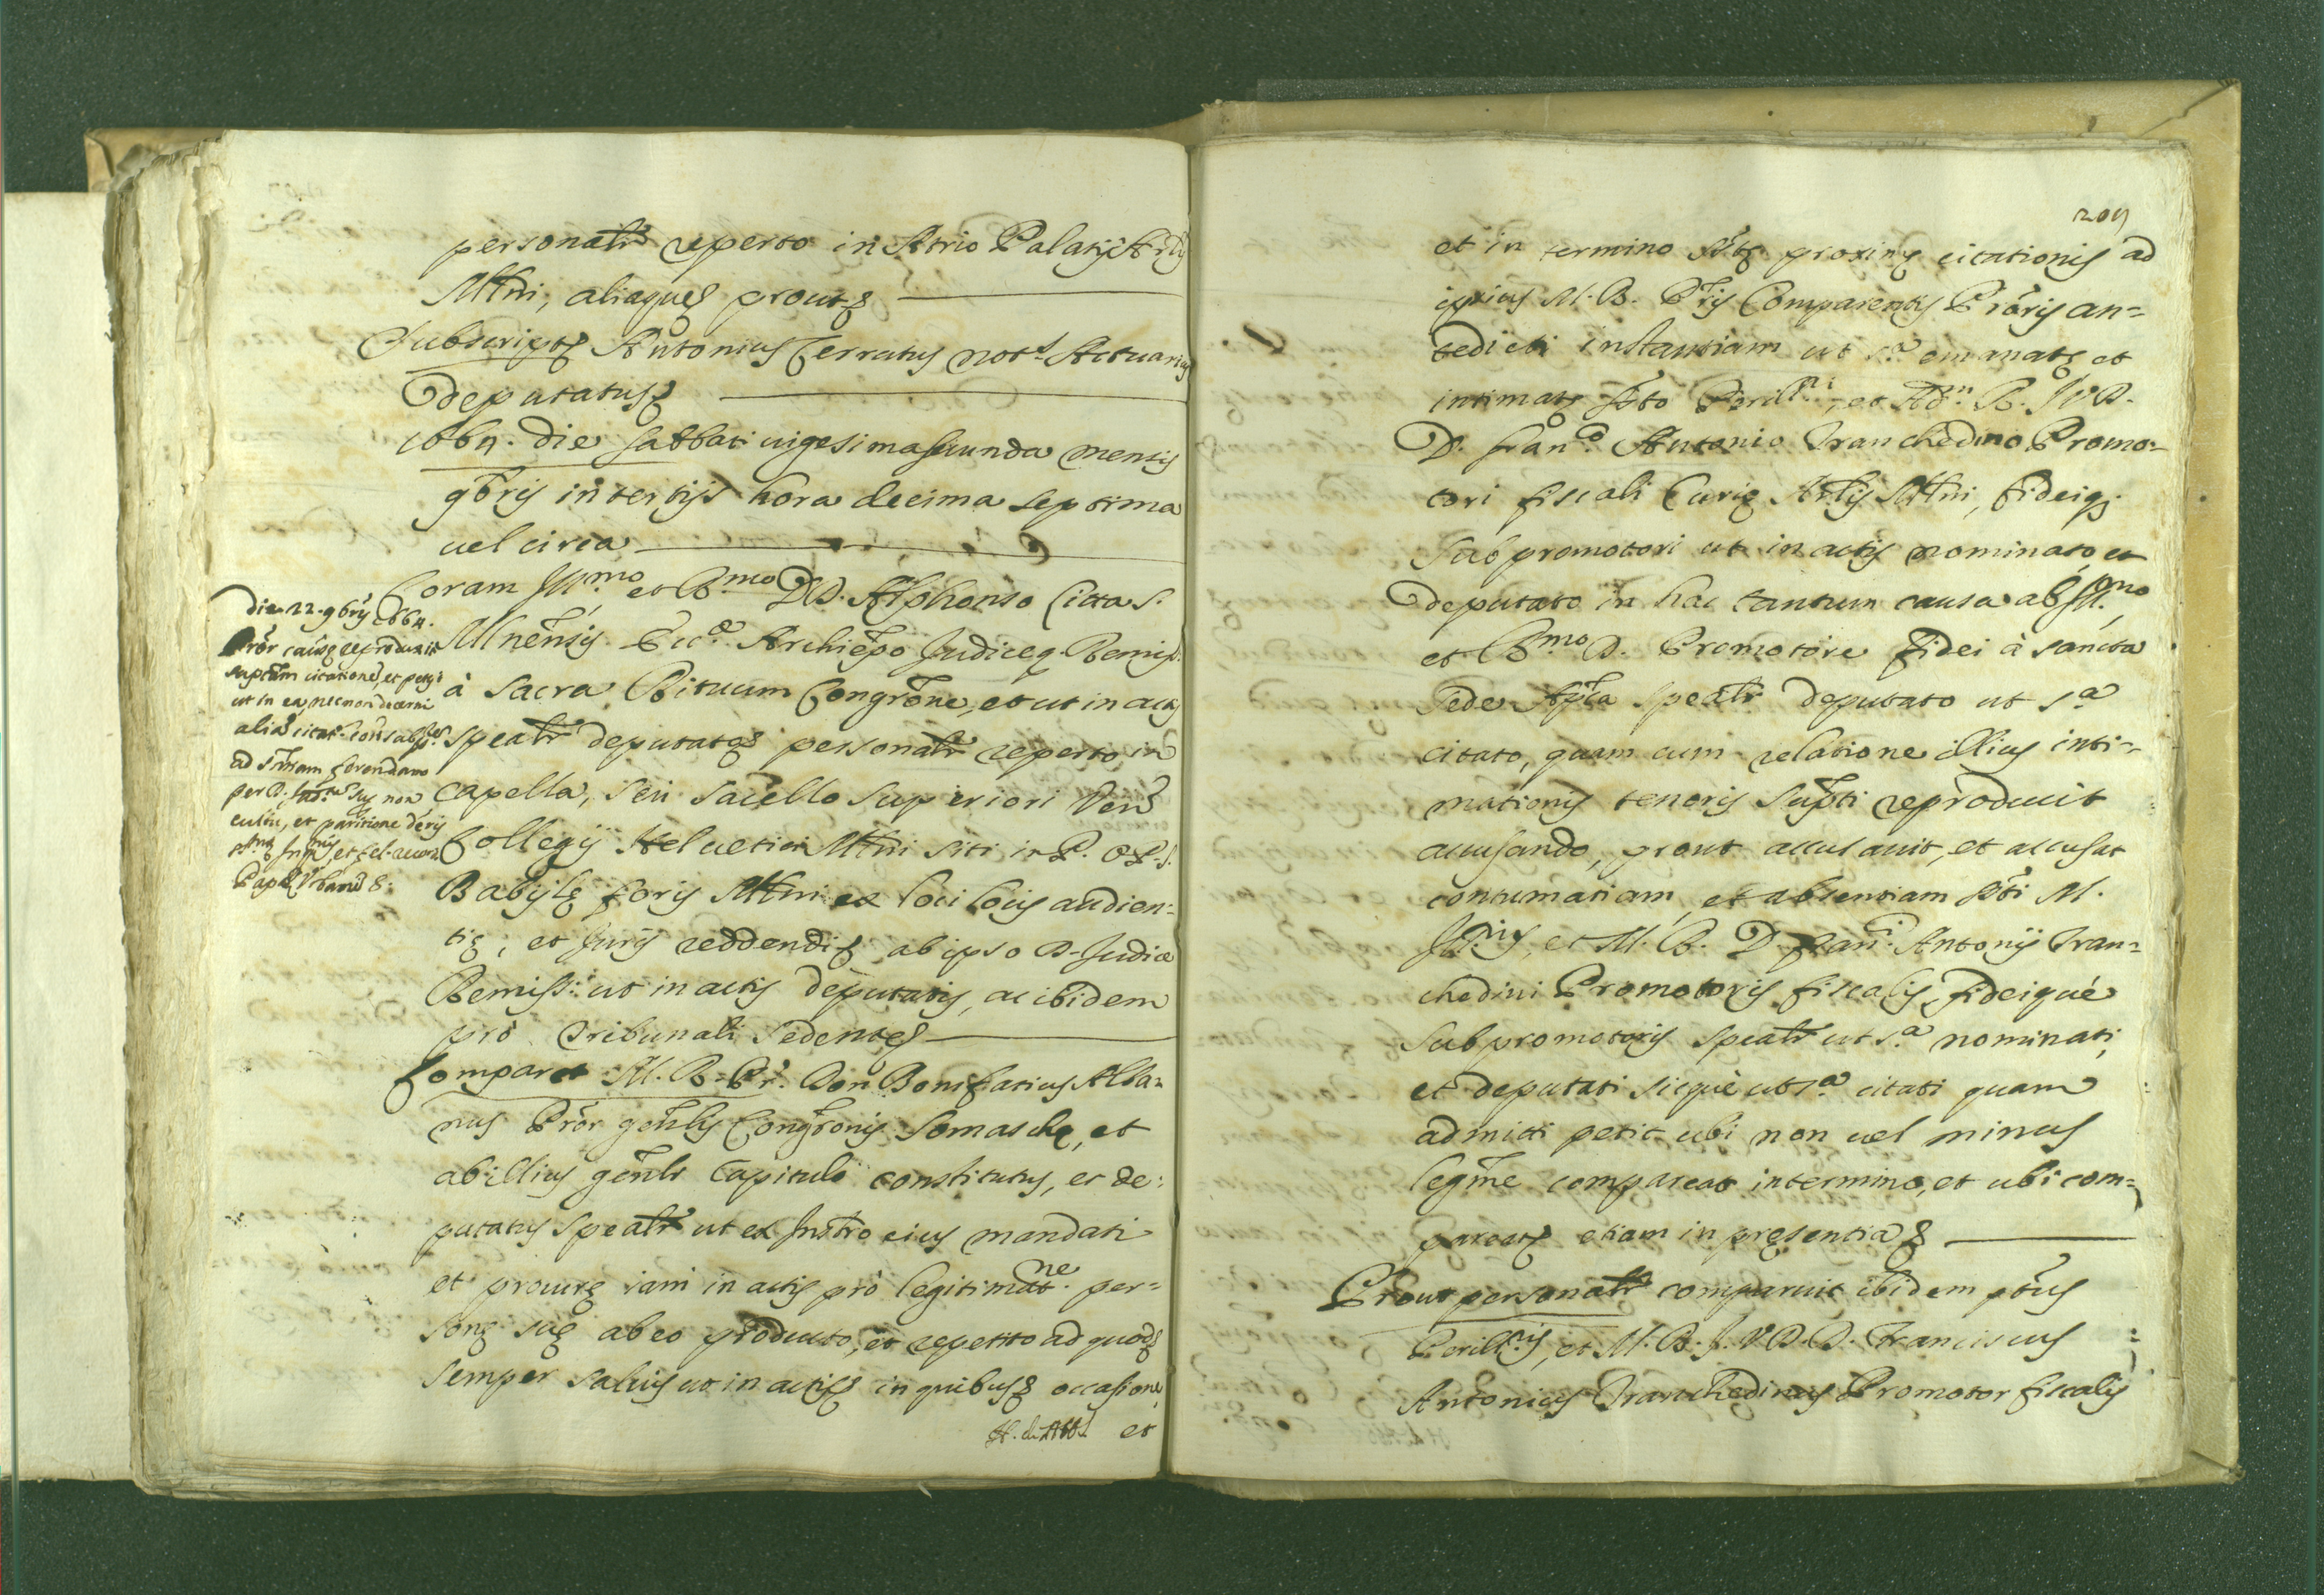 personalr reperto in Atrio Palatij Arlis
Mlni, aliaque prout &
Subscript Antonius Cerrutus not.s Actuarius
deputatus &
1664. die sabbati uigesimasecunda mensis
9bris in tertijs hora decima septima
uel circa
Coram Ill.mo et R.mo DD. Alphonso Litta S.
Mlnensis Ecc.æ Archiepo Judiceq. Remiss.
à Sacra Rituum Congrone, et ut in actis
spealr deputato & personalr reperto in
capella, seu sacello superiori Ven
Collegij Heluetici Mlni siti in P. O. P. S.
Babilę foris Mlni ex loci locis audien=
tię, et Juris reddendi & ab ipso D. Judice
Remiss: ut in actis deputatis, ac ibidem
pro tribunali sedente &
Comparet M. R. Pr. Don Bonifatius Alba=
nus Pror genlis Congronis Somaschę, et
ab illius genlr Capitulo constitutus, et de=
putatus spealr ut ex Instro eius mandati
et procurę iam in actis pro legitimat.ne per=
sonę suę ab eo producto, et repetito ad quod &
semper saluis ut in actis & in quibus & occasione,
et
die 22. 9bris 1664.
Pror causę reproduxit
suptam citatione, et petijt
ut in ea, necnon decerni
ad sntiam ferendam
cultu, et paritione decris
Papę Urbani 8.
209
et in termino sptę proximę citationis ad
ipsius M. R. Pris Comparentis Proris an=
tedicti instantiam ut s.a emanatę et
intimatę spto Perill.ri, et Adm. R. J. V. D.
D. Fran.o Antonio Tranchedino Promo=
tori fiscali Curię Arlis Mlni, fideiq.
subpromotori ut in actis nominato et
deputato in hac tantum causa ab Ill.mo
et R.mo D. Promotore fidei à sancta
Sede Aplica spealr deputato ut s.a
citato, quam cum relatione illius inti=
mationis tenoris supti reproducit
accusando, prout accusauit, et accusat
contumatiam, et absentiam spti M.
Ill.ris, et M. R. D. Fran.i Antonij Tran=
chedini Promotoris fiscalis, fideique
subpromotoris spealr ut s.a nominati,
et deputati sicque ut s.a citati quam
admitti petit ubi non uel minus
legme compareat in termino, et ubi com=
pareat & etiam in pręsentia &
Prout personalr comparuit ibidem ptus
Perill.ris, et M. R. J. V. D. D. Franciscus
Antonius Tranchedinus Promotor fiscalis